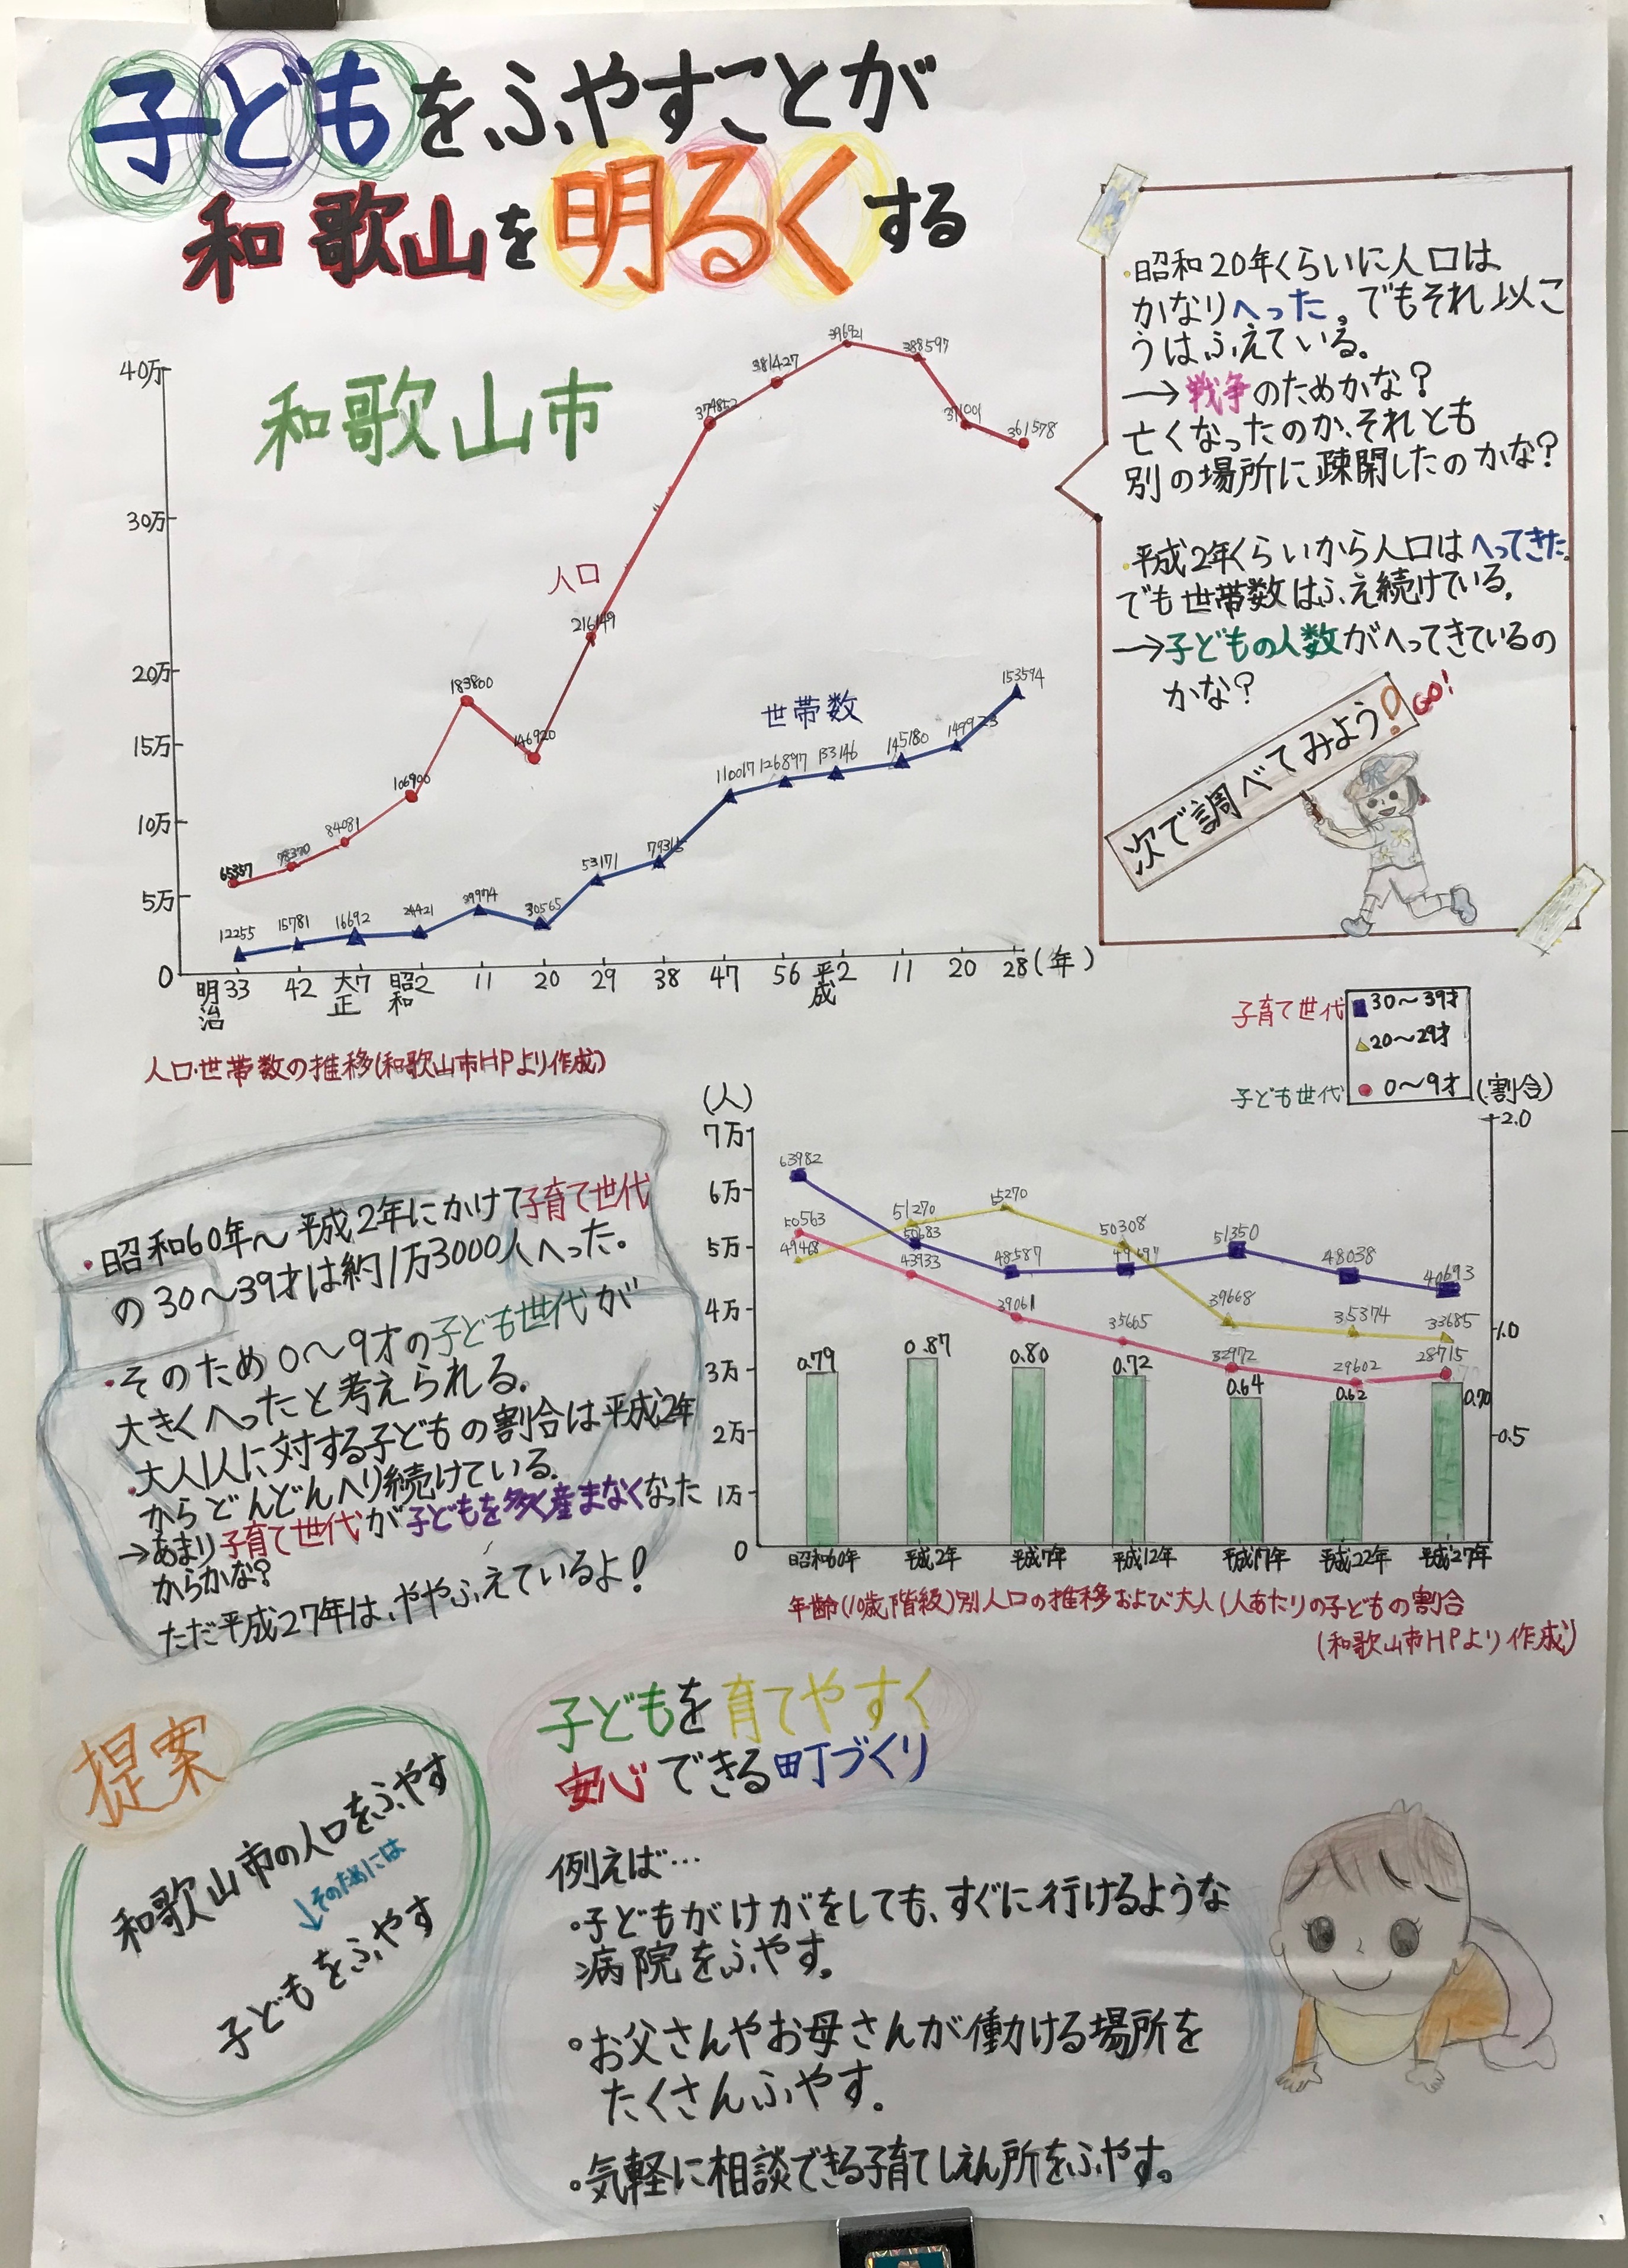 子どもをふやすことが
和歌山を明るくする
和歌山市
40万
30万
20万
15万
10万
5万
0
人口
世帯数
65357
78370
84081
106900
183800
146920
216149
374852
381427
396921
388597
361578
12255
15781
16692
24421
39974
30565
53171
110017
126897
133146
145180
149923
153594
明治33
42
大正7
昭和2
11
20
29
38
47
56
平成2
11
20
28(年)
人口・世帯数の推移(和歌山市HPより作成)
・昭和20年くらいに人口は
かなりへった。でもそれ以こ
うはふえている。
→戦争のためかな?
亡くなったのか、それとも
別の場所に疎開したのかな?
・平成2年くらいから人口はへってきた。
でも世帯数はふえ続けている。
→子どもの人数がへってきているの
かな?
次で調べてみよう!
GO!
子育て世代
30〜39才
20〜29才
子ども世代
0〜9才
(人)
7万
6万
5万
4万
3万
2万
1万
0
(割合)
2.0
1.0
0.5
63982
50563
49468
51270
50683
43933
48587
39061
50308
35665
51350
39668
32972
48038
35374
29602
40693
33685
28715
0.79
0.87
0.80
0.72
0.64
0.62
0.70
昭和60年
平成2年
平成7年
平成12年
平成17年
平成22年
平成27年
年齢(10歳階級)別人口の推移および大人1人あたりの子どもの割合
(和歌山市HPより作成)
・昭和60年〜平成2年にかけて子育て世代
の30〜39才は約1万3000人へった。
・そのため0〜9才の子ども世代が
大きくへったと考えられる。
・大人1人に対する子どもの割合は平成2年
からどんどんへり続けている。
→あまり子育て世代が子どもを多く産まなくなった
からかな?
ただ平成27年は、ややふえているよ!
提案
和歌山市の人口をふやす
↓そのためには
子どもをふやす
子どもを育てやすく
安心できる町づくり
例えば…
・子どもがけがをしても、すぐに行けるような
病院をふやす。
・お父さんやお母さんが働ける場所を
たくさんふやす。
・気軽に相談できる子育てしえん所をふやす。